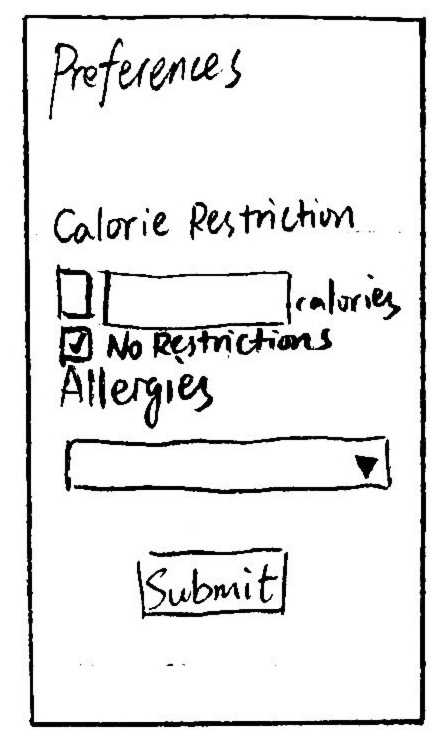 Preferences
Calorie Restriction
calories
No Restrictions
Allergies
Submit